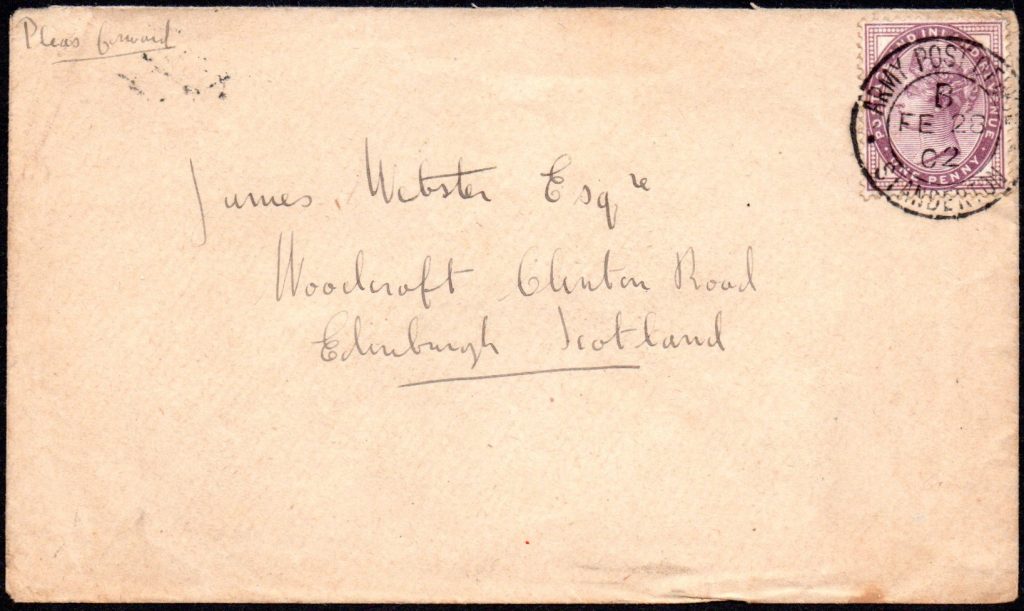 Pleas forward
James Webster Esqre
Woodcroft Clinton Road
Edinburgh Scotland
ARMY POST OFFICE
B
FE 28
02
STANDERTON
POSTAGE AND INLAND REVENUE
ONE PENNY